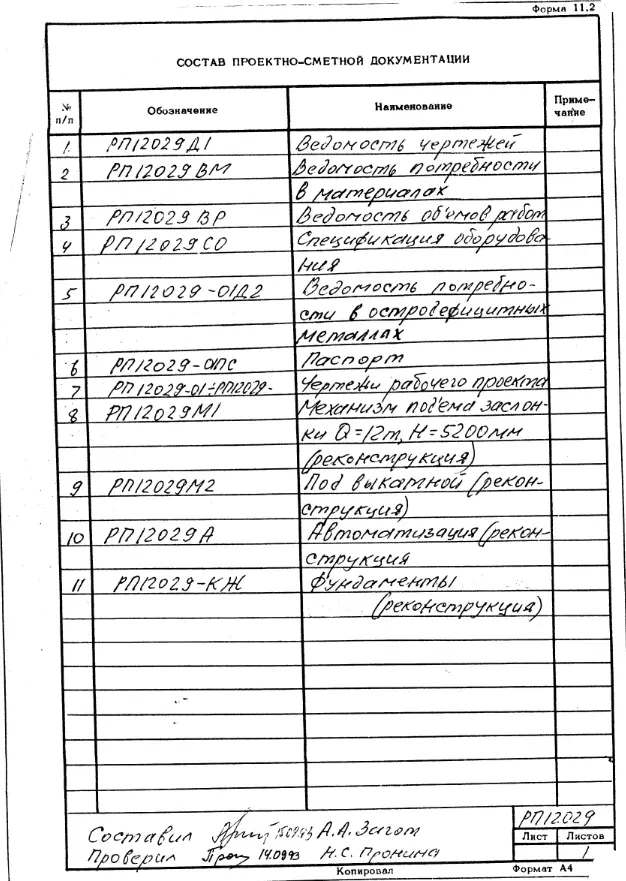 Форма 11.2
СОСТАВ ПРОЕКТНО-СМЕТНОЙ ДОКУМЕНТАЦИИ
№ п/п Обозначение Наименование Приме-чание
1 РП12029Д1 Ведомость чертежей
2 РП12029ВМ Ведомость потребности
в материалах
3 РП12029ВР Ведомость объёмов работ
4 РП12029СО Спецификация оборудова
ния
5 РП12029-01Д2 Ведомость потребно-
сти в остродефицитных
металлах
6 РП12029-01ПС Паспорт
7 РП12029-01÷РП12029- Чертежи рабочего проекта
8 РП12029М1 Механизм подъема заслон-
ки Q=12т, H=5200мм
(реконструкция)
9 РП12029М2 Под выкатной (рекон-
струкция)
10 РП12029А Автоматизация (рекон-
струкция
11 РП12029-КЖ Фундаменты
(реконструкция)
РП12029
Составил 150993 А.А. Загот
Лист Листов
Проверил 140993 Н.С. Пронина 1
Копировал Формат А4